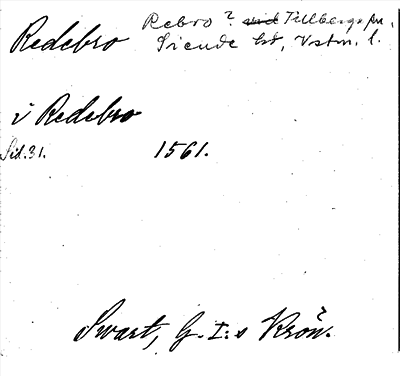 Redebro
Rebro? vid Tillberga sn,
Siende hd, Vstm. l.
i Redebro
Sid. 31.
1561.
Swart, G. I:s Krön.